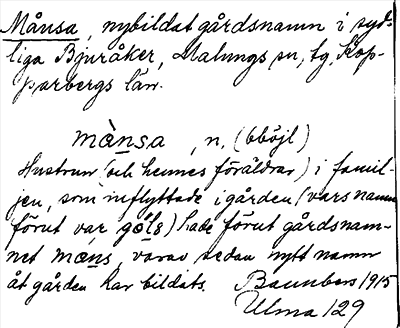 Månsa, nybildat gårdsnamn i syd-
liga Bjuråker, Malungs sn, Kop-
parbergs län.
månsa, n, (oböjl)
Hustrun (och hennes föräldrar) i famil-
jen, som inflyttade i gården (vars namn
förut var göls) hade förut gårdsnam-
net måns, varav sedan nytt namn
åt gården har bildats. 1915
Ulma 129